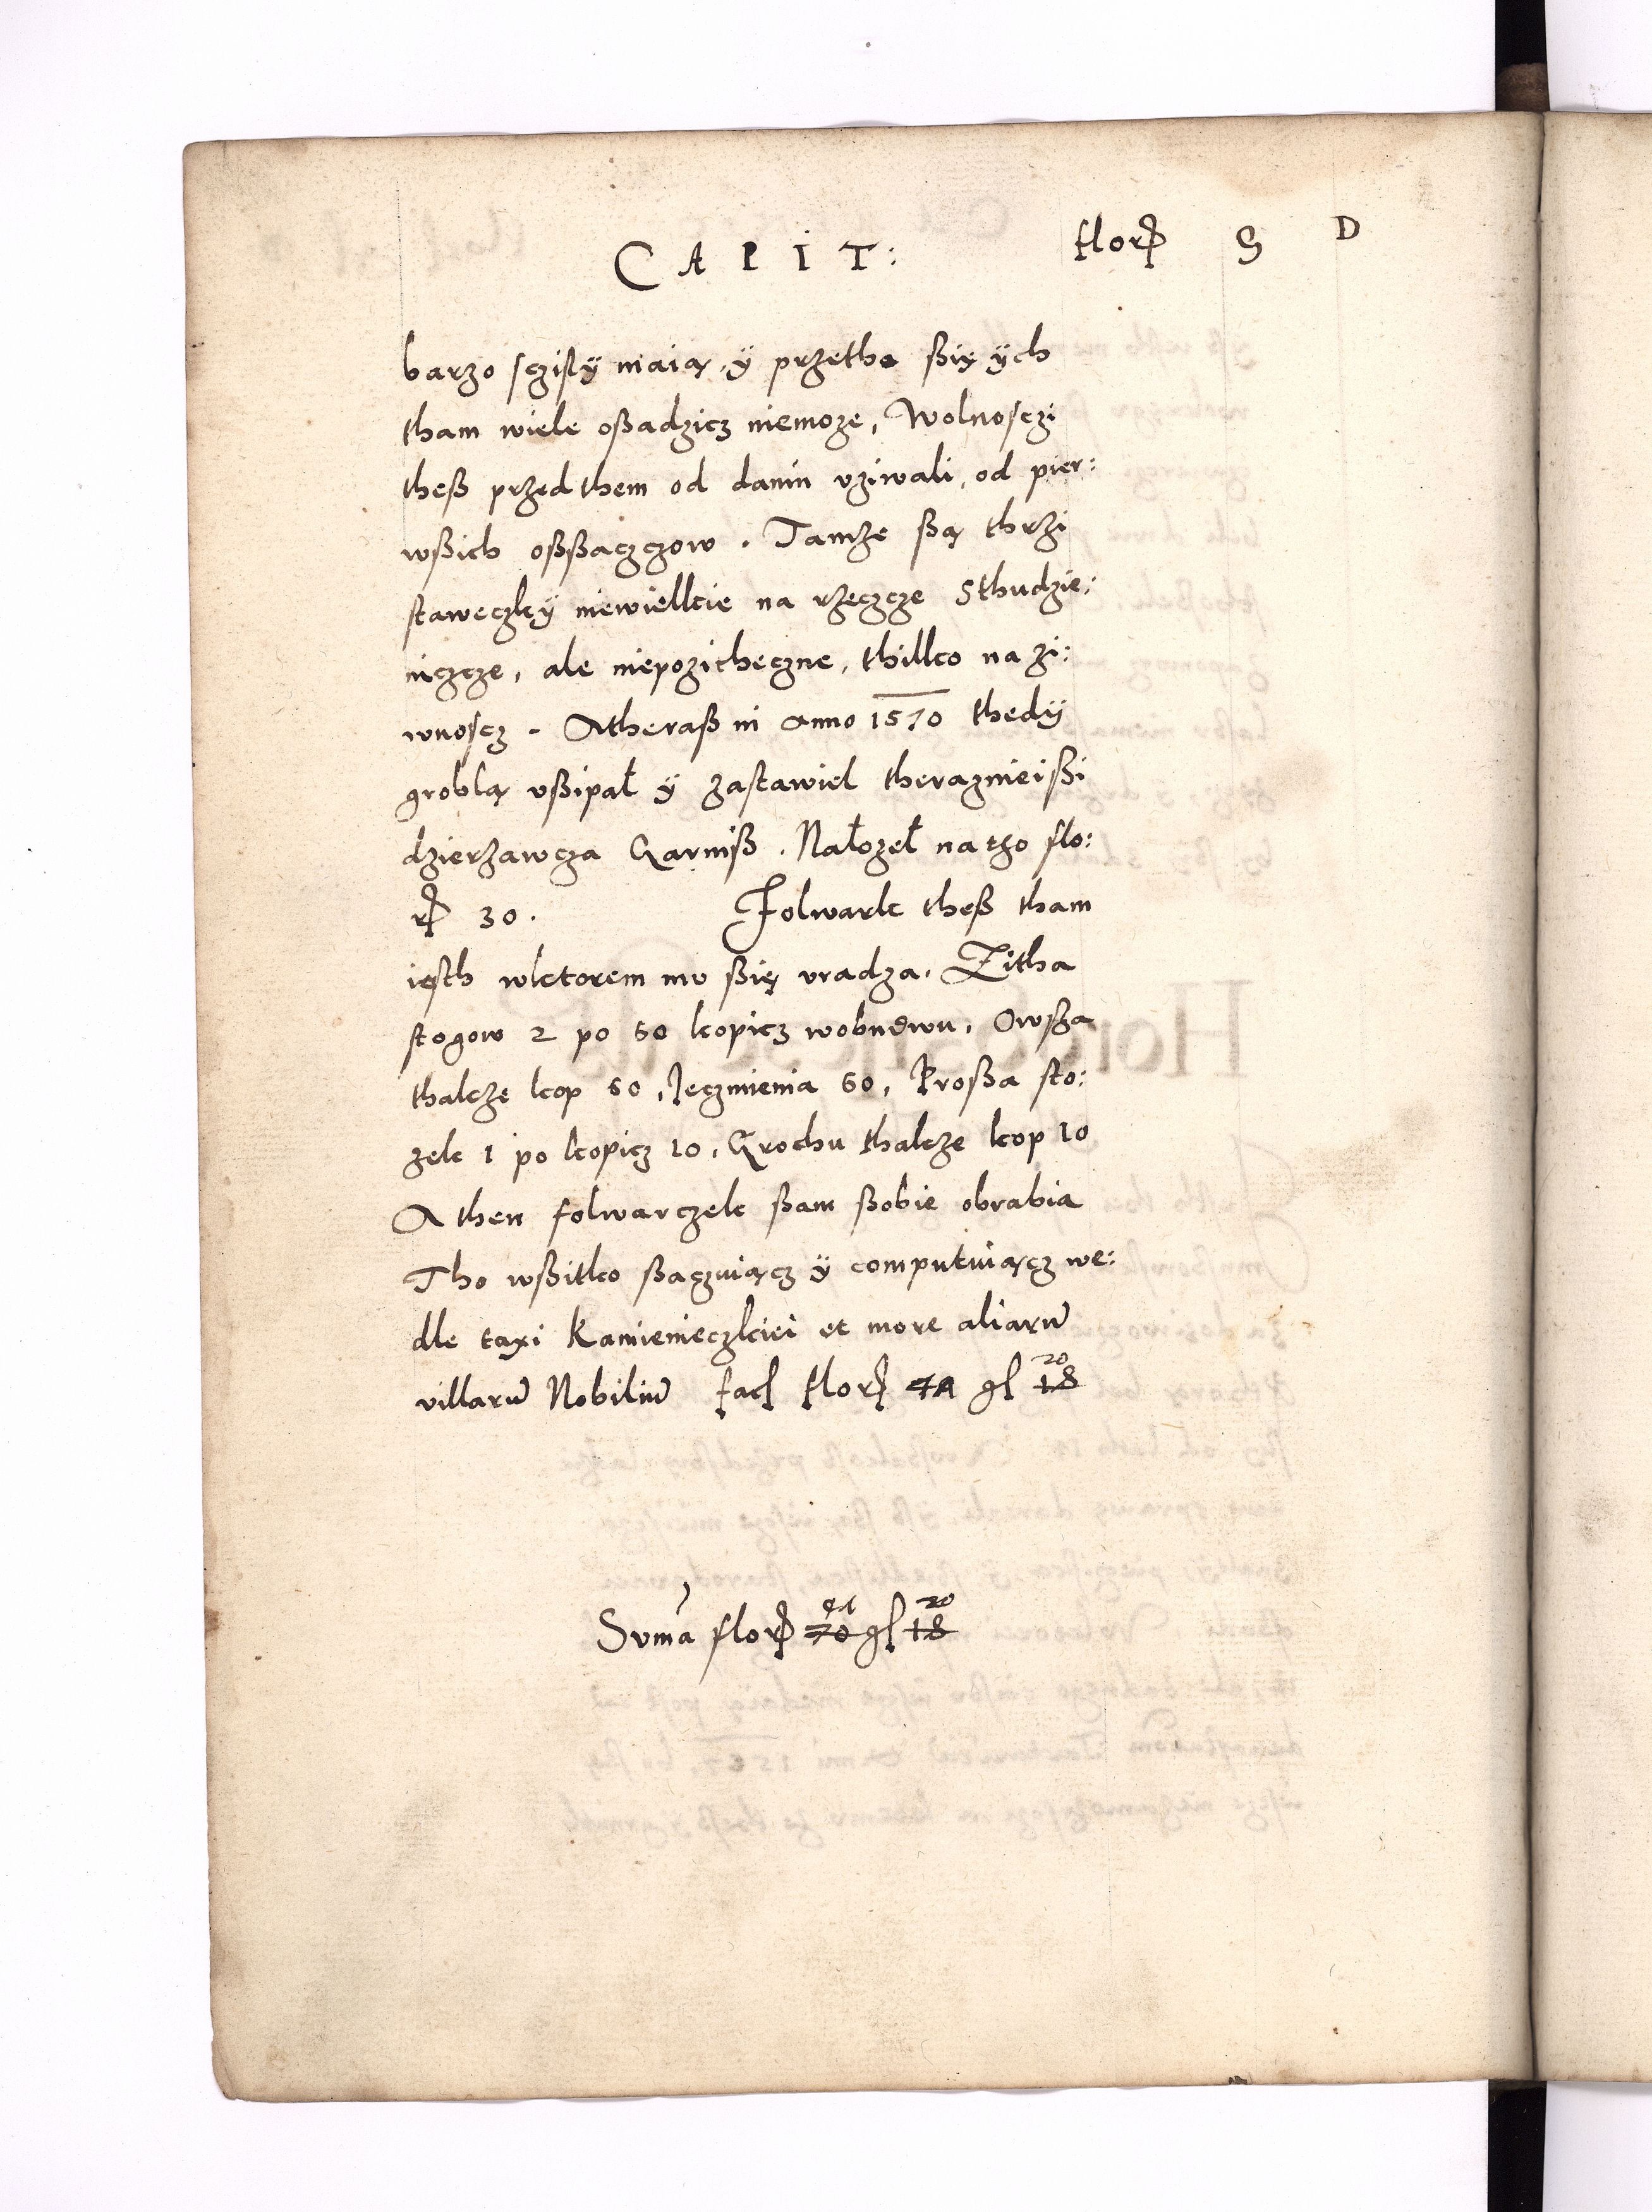 CAPIT: flor S D
barzo sczisly maią, y przetho ßię ych
tham wiele oßadzicz niemoze, Wolnosczi
theß przed them od danin vziwali, od pier:
wßich oßßaczczow. Tamże ßą thrzi
staweczky niewielkie na rzeczcze Sthudzie:
niczcze, ale niepozitheczne, thilko na zi:
wnoscz. Atheraß in anno 1570 thedy
groblą vßipał y zastawiel theraznieißi
dzierżawcza Garniß. Nałozeł na tho flo:
r 30. Folwark theß tham
iesth wktorem mu ßię vradza. Zitha
stogow 2 po 60 kopicz wobudwu, Owßa
thakże kop 60, Jeczmienia 60, Proßa sto:
zek 1 po kopicz 10, Grochu thakże kop 10
A then folwarczek ßam ßobie obrabia
Tho wßitko ßaczuiącz y computuiącz we:
dle taxi Kamienieczkiei et more aliarū
villarū Nobiliū fac flor 41 gs 20 18
Suma flor 41 70 gs 20 18